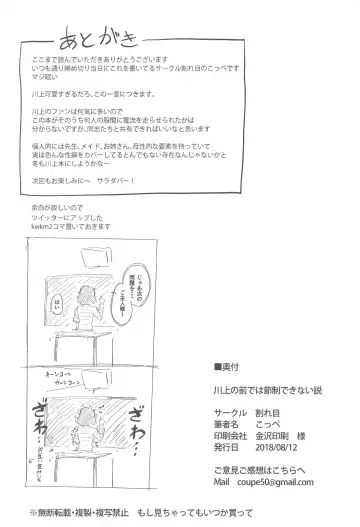 あとがき
ここまで読んでいただきありがとうございます
いつも通り締め切り当日にこれを書いてるサークル割れ目のこっぺです
マジ眠い
川上可愛すぎるだろ、この一言につきます。
川上のファンは何気に多いので
この本がそのうち何人の股間に電流を走らせられたかは
分からないですが、同志たちと共有できればいいなと思います
個人的には先生、メイド、お姉さん、母性的な要素を持っていて
実は色んな性癖をカバーしてるとんでもない存在なんじゃないかと
冬も川上本にしようかなー
次回もお楽しみに～　サラダバー！
余白が寂しいので
ツイッターにアップした
kwkm2コマ置いておきます
じゃあ次の
問題を…
ご主人様ー
はい
キーンコーン
カーンコーン
ざわ…
ざわ…
■奥付
川上の前では節制できない説
サークル　割れ目
筆者名　こっぺ
印刷会社　金沢印刷　様
発行日　2018/08/12
ご意見ご感想はこちらへ
Mail　coupe50@gmail.com
※無断転載・複製・複写禁止　もし見ちゃってもいつか買って